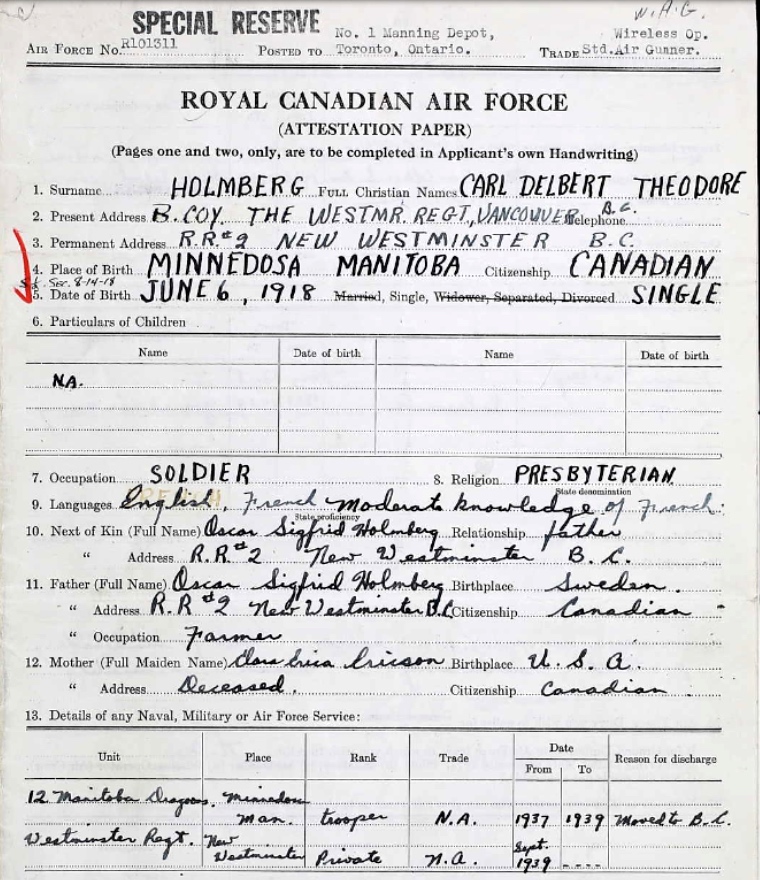 W.A.G.
SPECIAL RESERVE
No. 1 Manning Depot, Wireless Op.
AIR FORCE No. R101311 POSTED TO Toronto, Ontario. TRADE Std.Air Gunner.
ROYAL CANADIAN AIR FORCE
(ATTESTATION PAPER)
(Pages one and two, only, are to be completed in Applicant's own Handwriting)
1. Surname HOLMBERG FULL Christian Names CARL DELBERT THEODORE
2. Present Address B. COY. THE WESTMR. REGT, VANCOUVER B.C. Telephone
3. Permanent Address R.R.#2 NEW WESTMINSTER B.C.
4. Place of Birth MINNEDOSA MANITOBA Citizenship CANADIAN
Sec. 8-14-18
5. Date of Birth JUNE 6, 1918 Married, Single, Widower, Separated, Divorced SINGLE
6. Particulars of Children
Name Date of birth Name Date of birth
NA.
7. Occupation SOLDIER 8. Religion PRESBYTERIAN
State denomination
9. Languages English, French moderate knowledge of French.
State proficiency
10. Next of Kin (Full Name) Oscar Sigfrid Holmberg Relationship father
" Address R.R.#2 New Westminster B.C.
11. Father (Full Name) Oscar Sigfrid Holmberg Birthplace Sweden.
" Address R.R #2 New Westminster B.C Citizenship Canadian
" Occupation Farmer
12. Mother (Full Maiden Name) Clara Erica Ericson Birthplace U.S.A.
" Address Deceased. Citizenship Canadian
13. Details of any Naval, Military or Air Force Service:
Unit Place Rank Trade Date Reason for discharge
From To
12 Manitoba Dragoons. Minnedosa
Man. trooper N.A. 1937 1939 Moved to B.C.
Westminster Regt. New
Westminster Private N.A. Sept. 1939 ----